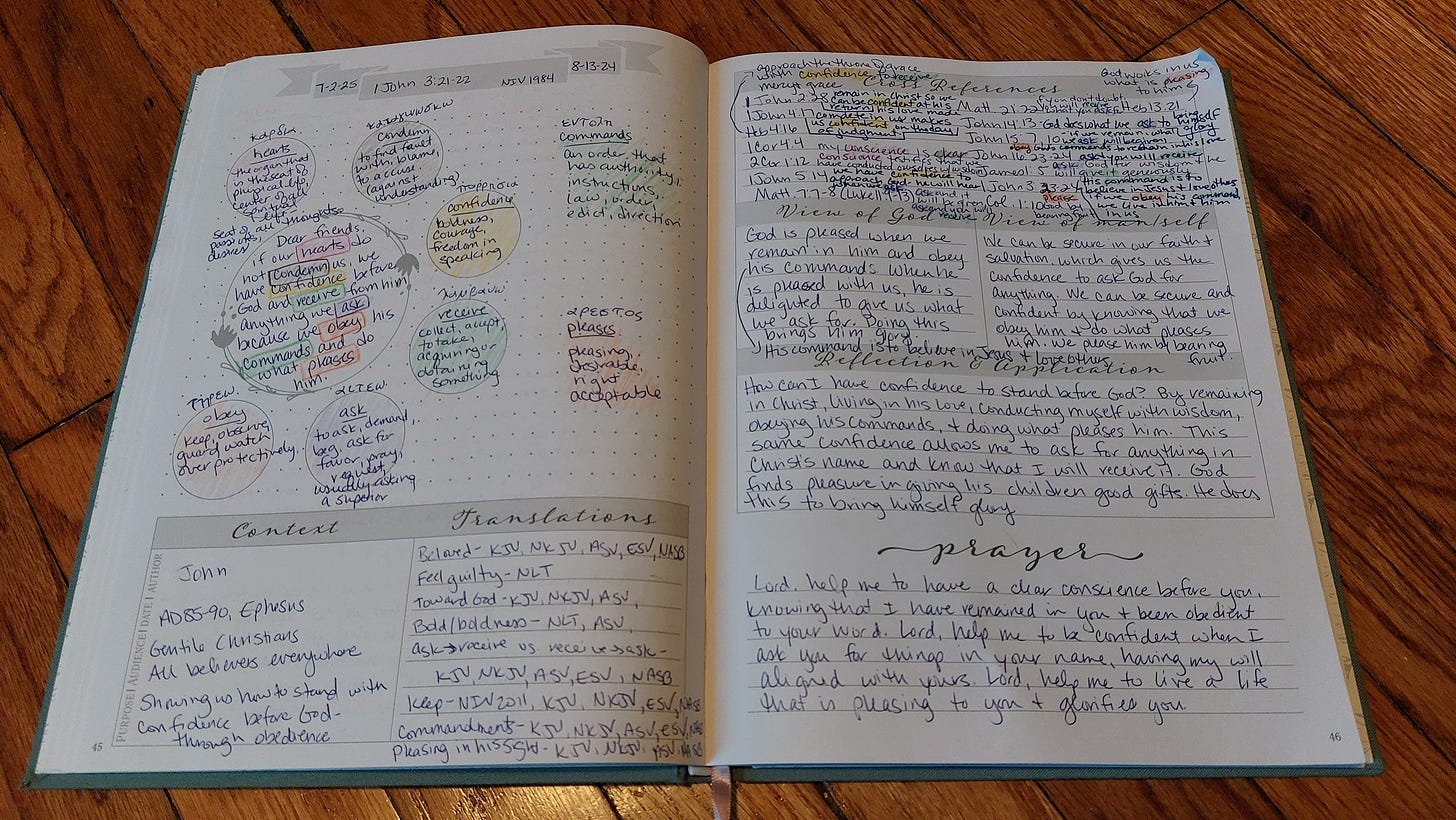 7-2-25
1 John 3:21-22
NIV 1984
8-13-24
καρδια
hearts
the organ that
is the seat of
physical life,
center of
spiritual
life.
seat of all thoughts,
passions,
desires
Condemn
to find fault
with, blame,
to accuse.
(against
understanding)
εντολη
commands
an order that
has authority,
instructions,
law, order,
edict, direction
confidence
boldness,
courage,
freedom in
speaking
Dear friends,
if our hearts do
not condemn us, we
have confidence before
God and receive from him
anything we ask
because we obey his
commands and do
what pleases
him.
receive
collect, accept,
to take,
acquiring or
obtaining
something
αρεστος
pleases
pleasing,
desirable,
right
acceptable
τηρεω
obey
keep, observe,
guard watch
over protectively.
αιτεω
ask
to ask, demand,
beg, ask for
favor, pray,
request,
usually asking
a superior
Context
PURPOSE | AUDIENCE | DATE | AUTHOR
John
AD85-90, Ephesus
Gentile Christians
All believers everywhere
Showing us how to stand with
confidence before God-
through obedience
Translations
Beloved- KJV, NKJV, ASV, ESV, NASB
Feel guilty- NLT
Toward God- KJV, NKJV, ASV,
Bold/boldness- NLT, ASV,
ask→receive vs receive→ask-
KJV, NKJV, ASV, ESV, NASB
Keep- NIV 2011, KJV, NKJV, ESV, NASB
Commandments- KJV, NKJV, ASV, ESV, NASB
Pleasing in his sight- KJV, NKJV, ASV, NASB
45
approach the throne of grace
with confidence to receive
mercy + grace
God works in us
what is pleasing
to him
Cross References
1 John 2:28 remain in Christ so we
can be confident at his
return
1 John 4:17
us confident on the day
of judgment
Heb 4:16
1 Cor 4:4 my conscience is clear
2 Cor 1:12 conscience testifies that we
have conducted ourselves
1 John 5:14 we have confidence to
approach
Matt. 7:7-8 (Luke 11:9-13)
Matt. 21:22
Heb 13:21
John 14:13- God does what we ask to bring
himself
glory
John 15:7, 10
John 16:23-24 ask you will receive
James 1:5
will give it generously
his command is to
believe in Jesus + love others
if we obey his commands,
we live in him + he
in us
please
View of God
God is pleased when we
remain in him and obey
his commands. When he
is pleased with us, he is
delighted to give us what
we ask for. Doing this
brings him glory.
His command is to believe in Jesus + love others
View of man/self
We can be secure in our faith +
salvation, which gives us the
confidence to ask God for
anything. We can be secure and
confident by knowing that we
obey him + do what pleases
him. We please him by bearing
fruit
Reflection & Application
How can I have confidence to stand before God? By remaining
in Christ, living in his love, conducting myself with wisdom,
obeying his commands, + doing what pleases him. This
same confidence allows me to ask for anything in
Christ's name and know that I will receive it. God
finds pleasure in giving his children good gifts. He does
this to bring himself glory
prayer
Lord, help me to have a clear conscience before you,
knowing that I have remained in you + been obedient
to your word. Lord, help me to be confident when I
ask you for things in your name, having my will
aligned with yours. Lord, help me to live a life
that is pleasing to you + glorifies you.
46